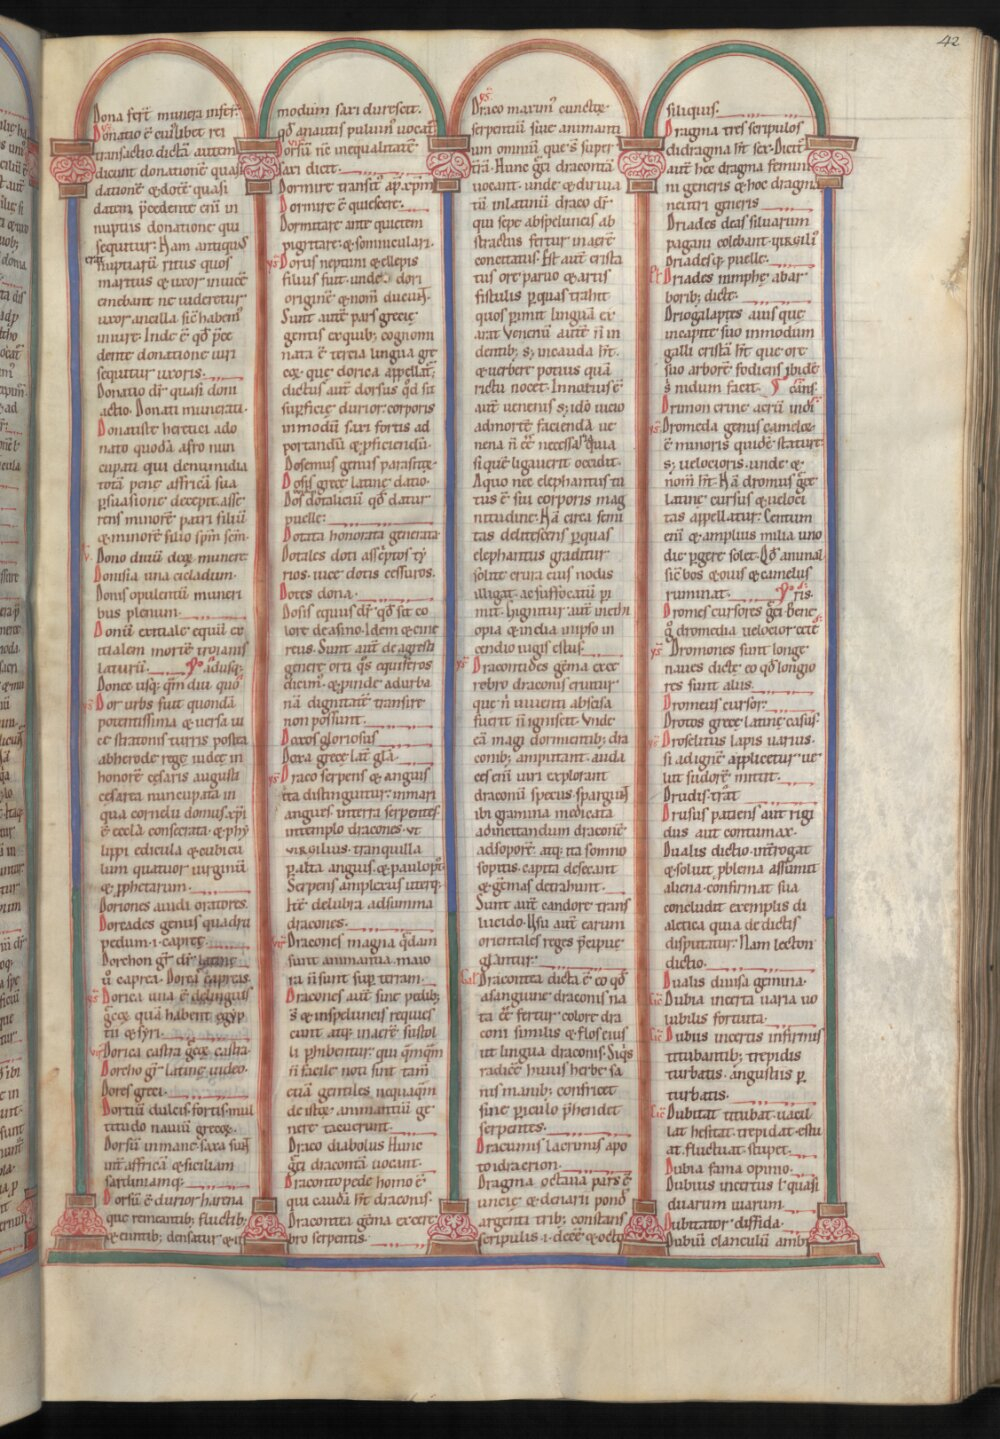 42
Dona fert̄ munera infert̄
Donatio ē cui᷒libet rei
transactio. dictā autem
dicunt donationē quasi
dationē ⁊ dotē quasi
datam. p̄cedente eni᷒ in
nuptiis donatione qui
sequitur. Nam antiquus
nuptiarū ritus quos
maritus ⁊ uxor inuicē
emebant ne uideretur
uxor ancilla sic̄ habem᷒
in iure. Inde ē qd̄ p̄ce
dente donatione uiri
sequitur uxoris.
Donatio dr̄ quasi doni
actio. Donati munerati.
Donatiste heretici a do
nato quodā afro nun
cupati qui de numidia
totā pene affricā sua
ꝑsuasione decepit. asse
rens minorē patri filiū
⁊ minorē filio sp̄m sc̄m.
Dono diuū deꝗ munere
Donisia una cicladum.
Donis opulentū muneri
bus plenum.
Donū exitiale equū ex
itialem mortē troianis
laturū. adusq;
Donec usq; qm̄ diu quo᷒
Dor urbs fuit quondā
potentissima ⁊ uersa ui
ce stratonis turris postea
ab herode rege iudeę in
honorē cęsaris augusti
cesarea nuncupata in
qua cornelii domus xp̄i
ē eccl̄a consecrata. ⁊ phy
lippi edicula ⁊ cubicu
lum quatuor uirginū
⁊ ꝓphetarum.
Doriones auidi oratores.
Doreades genus quadru
pedum .i. capreę.
Dorchon gr̄ dr̄ latine
u᷒ caprea. Dorea capreas.
Dorica una ē de linguis
gr̄cꝗ quā habent egyp
tii ⁊ syri.
Dorica castra gr̄ꝗ castra
Dorcho gr̄ latine uideo.
Dores greci.
Dortiū dulcis. fortis. mul
titudo nauiū grecoꝝ.
Dorsū inmane saxa sunt̄
int̄ affricā ⁊ siciliam
sardiniamq;
Dorsū ē durior harena
que remeantib; fluctib;
⁊ euntib; densatur ⁊ in
modum saxi durescit.
qd̄ a nautis puluin᷒ uocat᷒
Dorsū n̄c inequalitatē
saxi dicit.
Dormire transit᷒ ap̄. xp̄m
Dormire ē quiescere.
Dormitare ante quietem
pigritare ⁊ somniculari.
Dorus neptuni ⁊ ellepis
filius fuit. unde dori
originē ⁊ nom̄ ducunt̄.
Sunt autē pars grecię
gentis ex quib; cognomi
nata ē tercia lingua gre
coꝝ que dorica appellat᷒
dictus autē dorsus qd̄ sit
suꝑficię durior corporis
in modū saxi fortis ad
portandū ⁊ ꝑficiendū.
Dosemus genus parasitoꝝ
Dosis grece latine datio.
Dos dotaliciū qd̄ datur
puelle.
Dotata honorata generata
Dotales doti asc̄ptos ty
rios. uice dotis cessuros.
Dotes dona.
Dosis equus dr̄ qd̄ sit co
lore de asino. Idem ⁊ cine
reus. Sunt autē de agresti
genere orti qs̄ equiferos
dicim᷒. ⁊ ꝑinde ad urba
nā dignitatē transire
non possunt.
Doxos gloriosus
Doxa grece lat̄ gl̄a.
Draco serpens ⁊ anguis
ita distinguitur. in mari
angues. in terra serpentes
in templo dracones. ut
uirgilius. tranquilla
ꝑ alta angues. ⁊ paulo p᷒t
Serpens amplexus uterq;
Hec̄ delubra ad summa
dracones.
Dracones magna quedam
sunt animalia. maio
ra n̄ sunt sup terram.
Dracones aut̄ sine pedib;
s̄ ⁊ in speluncis reques
cunt atq; in aerē sustol
li ꝓhibentur. qui qm̄qm
n̄ facile noti sint tam̄
etiā gentiles nequaqm̄
de istoꝝ animantiū ge
nere tacuerunt.
Draco diabolus. Hunc
gr̄ci dracontā uocant.
Dracontopede homo ē
qui caudā ht̄ draconis.
Dracontia gēma ex cere
bro serpentis.
Draco maxim᷒ cunctoꝝ
serpentiū siue animanti
um omniū que s᷒ super
trā. Hunc gr̄ci draconta
uocant. unde ⁊ diriua
tū in latinū draco dr̄
qui sepe ab speluncis ab
stractus fertur in aere
concitatus. Est autē crista
tus ore paruo ⁊ artis
fistulis ꝑ quas trahit
quos p̄mit linguā ex
erat. Venenū autē n̄ in
dentib; s; in cauda ht̄.
⁊ uerbere potius quā
rictu nocet. Innoxius ē
autē uenenis s; ido uicio
ad mortē facienda ue
nena n̄ eē necessaria quia
si quē ligauerit occidit.
A quo nec elephantus tu
tus ē sui corporis mag
nitudine. Nā circa semi
tas delitescens ꝑ quas
elephantus graditur
solite crura eius nodis
illigat. ac suffocatū ꝑi
mit. Gignitur autē in ethi
opia ⁊ india in ipso in
cendio iugis estus.
Dracontides gēma ex ce
rebro draconis eruitur
que n̄ uiuenti abscisa
fuerit n̄ ignescit. Unde
eā magi dormientib; dra
conib; amputant. auda
ces eni᷒ uiri explorant
draconū specus. sparguut̄
ibi gramina medicata
ad incitandum draconē
ad soporē. atq; ita somno
sopitis. capita desecant
⁊ gēmas detrahunt.
Sunt autē candore trans
lucido. Usu autē earum
orientales reges p̄cipue
gl̄antur.
Dracontea dicta ē eo qd̄
a sanguine draconis na
ta eē fertur. colore dra
coni similis ⁊ flos eius
ut lingua draconis. Siq̄s
radicē huius herbe sa
nis manib; confricet
sine ꝑiculo p̄hendet
serpentes.
Dracumis lacrimis apo
to idracrion.
Dragma octaua pars ē
uncię ⁊ denarii pond᷒
argenti trib; constans
scripulis .i. decē ⁊ octo
siliquis.
Dragma tres scripulos
didragma ht̄ sex. Dicit̄
autē hec dragma femini
ni generis ⁊ hoc dragma
neutri generis
Driades deas siluarum
pagani colebant. uirgili᷒
Driadesq; puelle.
Driades nimphę. ab ar
borib; dictę.
Driogalaptes auis que
in capite suo in modum
galli cristā ht̄. que ore
suo arborē fodiens. ibidē
s᷒ nidum facit. cans᷒
Drimon crine aeriū indi᷒
Dromeda genus cameloꝝ
ē minoris quidē staturę
s; uelocioris. unde ⁊
nom̄ ht̄. Nā dromus grece
latine cursus ⁊ ueloci
tas appellatur. Centum
eni᷒ ⁊ amplius milia uno
die ꝑgere solet. Qd̄ animal
sic̄ bos ⁊ ouis ⁊ camelus
ruminat. ris.
Dromes cursores gr̄ci. Bene
ꝗ dromedia uelocior cete
Dromones sunt longe
naues dictę eo qd̄ longio
res sunt aliis.
Dromeus cursor.
Drotos grece latine casus.
Droselitus lapis uarius.
si ad ignē applicetur ue
lut sudorē mittit.
Drudis. trat̄
Drusus patiens aut rigi
dus aut contumax.
Dualis dictio. int̄rogat
⁊ soluit. ꝓblema assumit
aliena. confirmat sua
concludit exemplis di
aletica quia de dictis
disputatur. Nam lecton
dictio.
Dualis diuisa gemina.
Dubia incerta uaria uo
lubilis fortuita.
Dubius incertis infirmis
titubantib; trepidis
turbatis. angustiis ꝑ
turbatis.
Dubitat titubat. uacil
lat. hesitat. trepidat. estu
at. fluctuat. stupet.
Dubia fama opinio.
Dubius incertus l̄ quasi
duarum uiarum.
Dubitator diffida.
Dubiū clanculū ambi